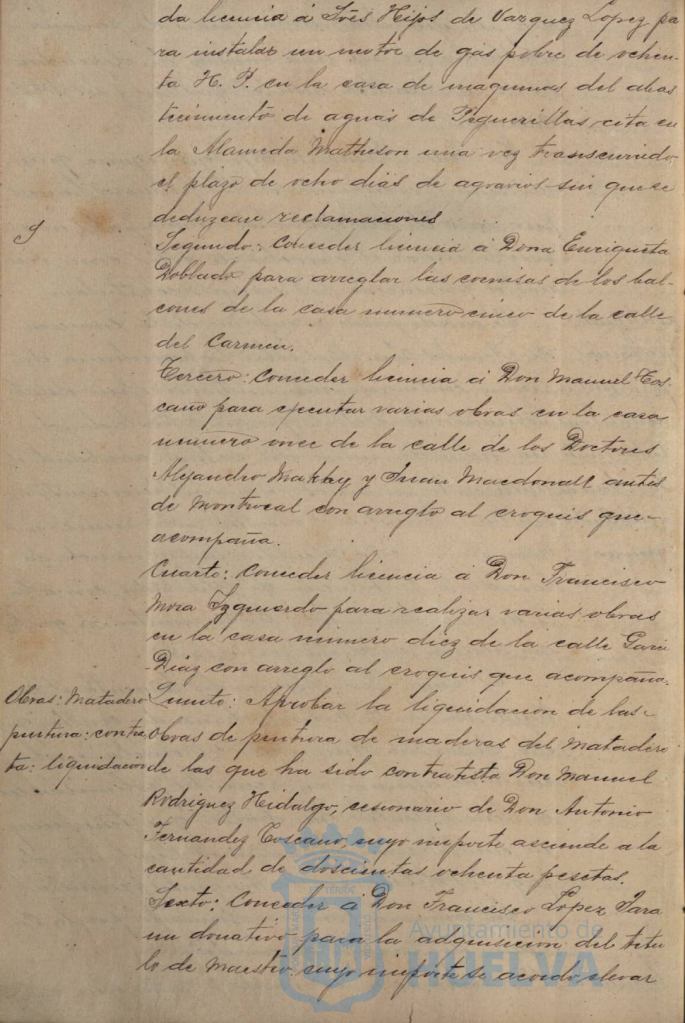 da licencia á Tres Hijos de Vazquez Lopez pa
ra instalar un motor de gas pobre de ochen-
ta H. P. en la casa de maquinas del abas
tecimiento de aguas de Peguerillas, cita en
la Alameda Matheson una vez transcurrido
el plazo de ocho dias de agravios sin que se
deduzcan reclamaciones
Segundo: Conceder licencia á Doña Enriqueta
Doblado para arreglar las cornisas de los bal-
cones de la casa numero cinco de la calle
del Carmen.
Tercero: Conceder licencia á Don Manuel Tos
cano para ejecutar varias obras en la casa
numero once de la calle de los Doctores
Alejandro Makhy y Juan Macdonall antes
de Montrocal con arreglo al croquis que
acompaña.
Cuarto: Conceder licencia á Don Francisco
Mora Izquierdo para realizar varias obras
en la casa número diez de la calle Garci
Diaz con arreglo al croquis que acompaña.
Obras: Matadero
pintura: contra
ta: liquidacion
Quinto: Aprobar la liquidacion de las
obras de pintura de maderas del Matadero
de las que ha sido contratista Don Manuel
Rodriguez Hidalgo, cesionario de Don Antonio
Fernandez Toscano, cuyo importe asciende a la
cantidad de doscientas ochenta pesetas.
Sexto: Conceder á Don Francisco Lopez Jara
un donativo para la adquisicion del titu
lo de Maestro, cuyo importe se acordo elevar
Ayuntamiento de
HUELVA